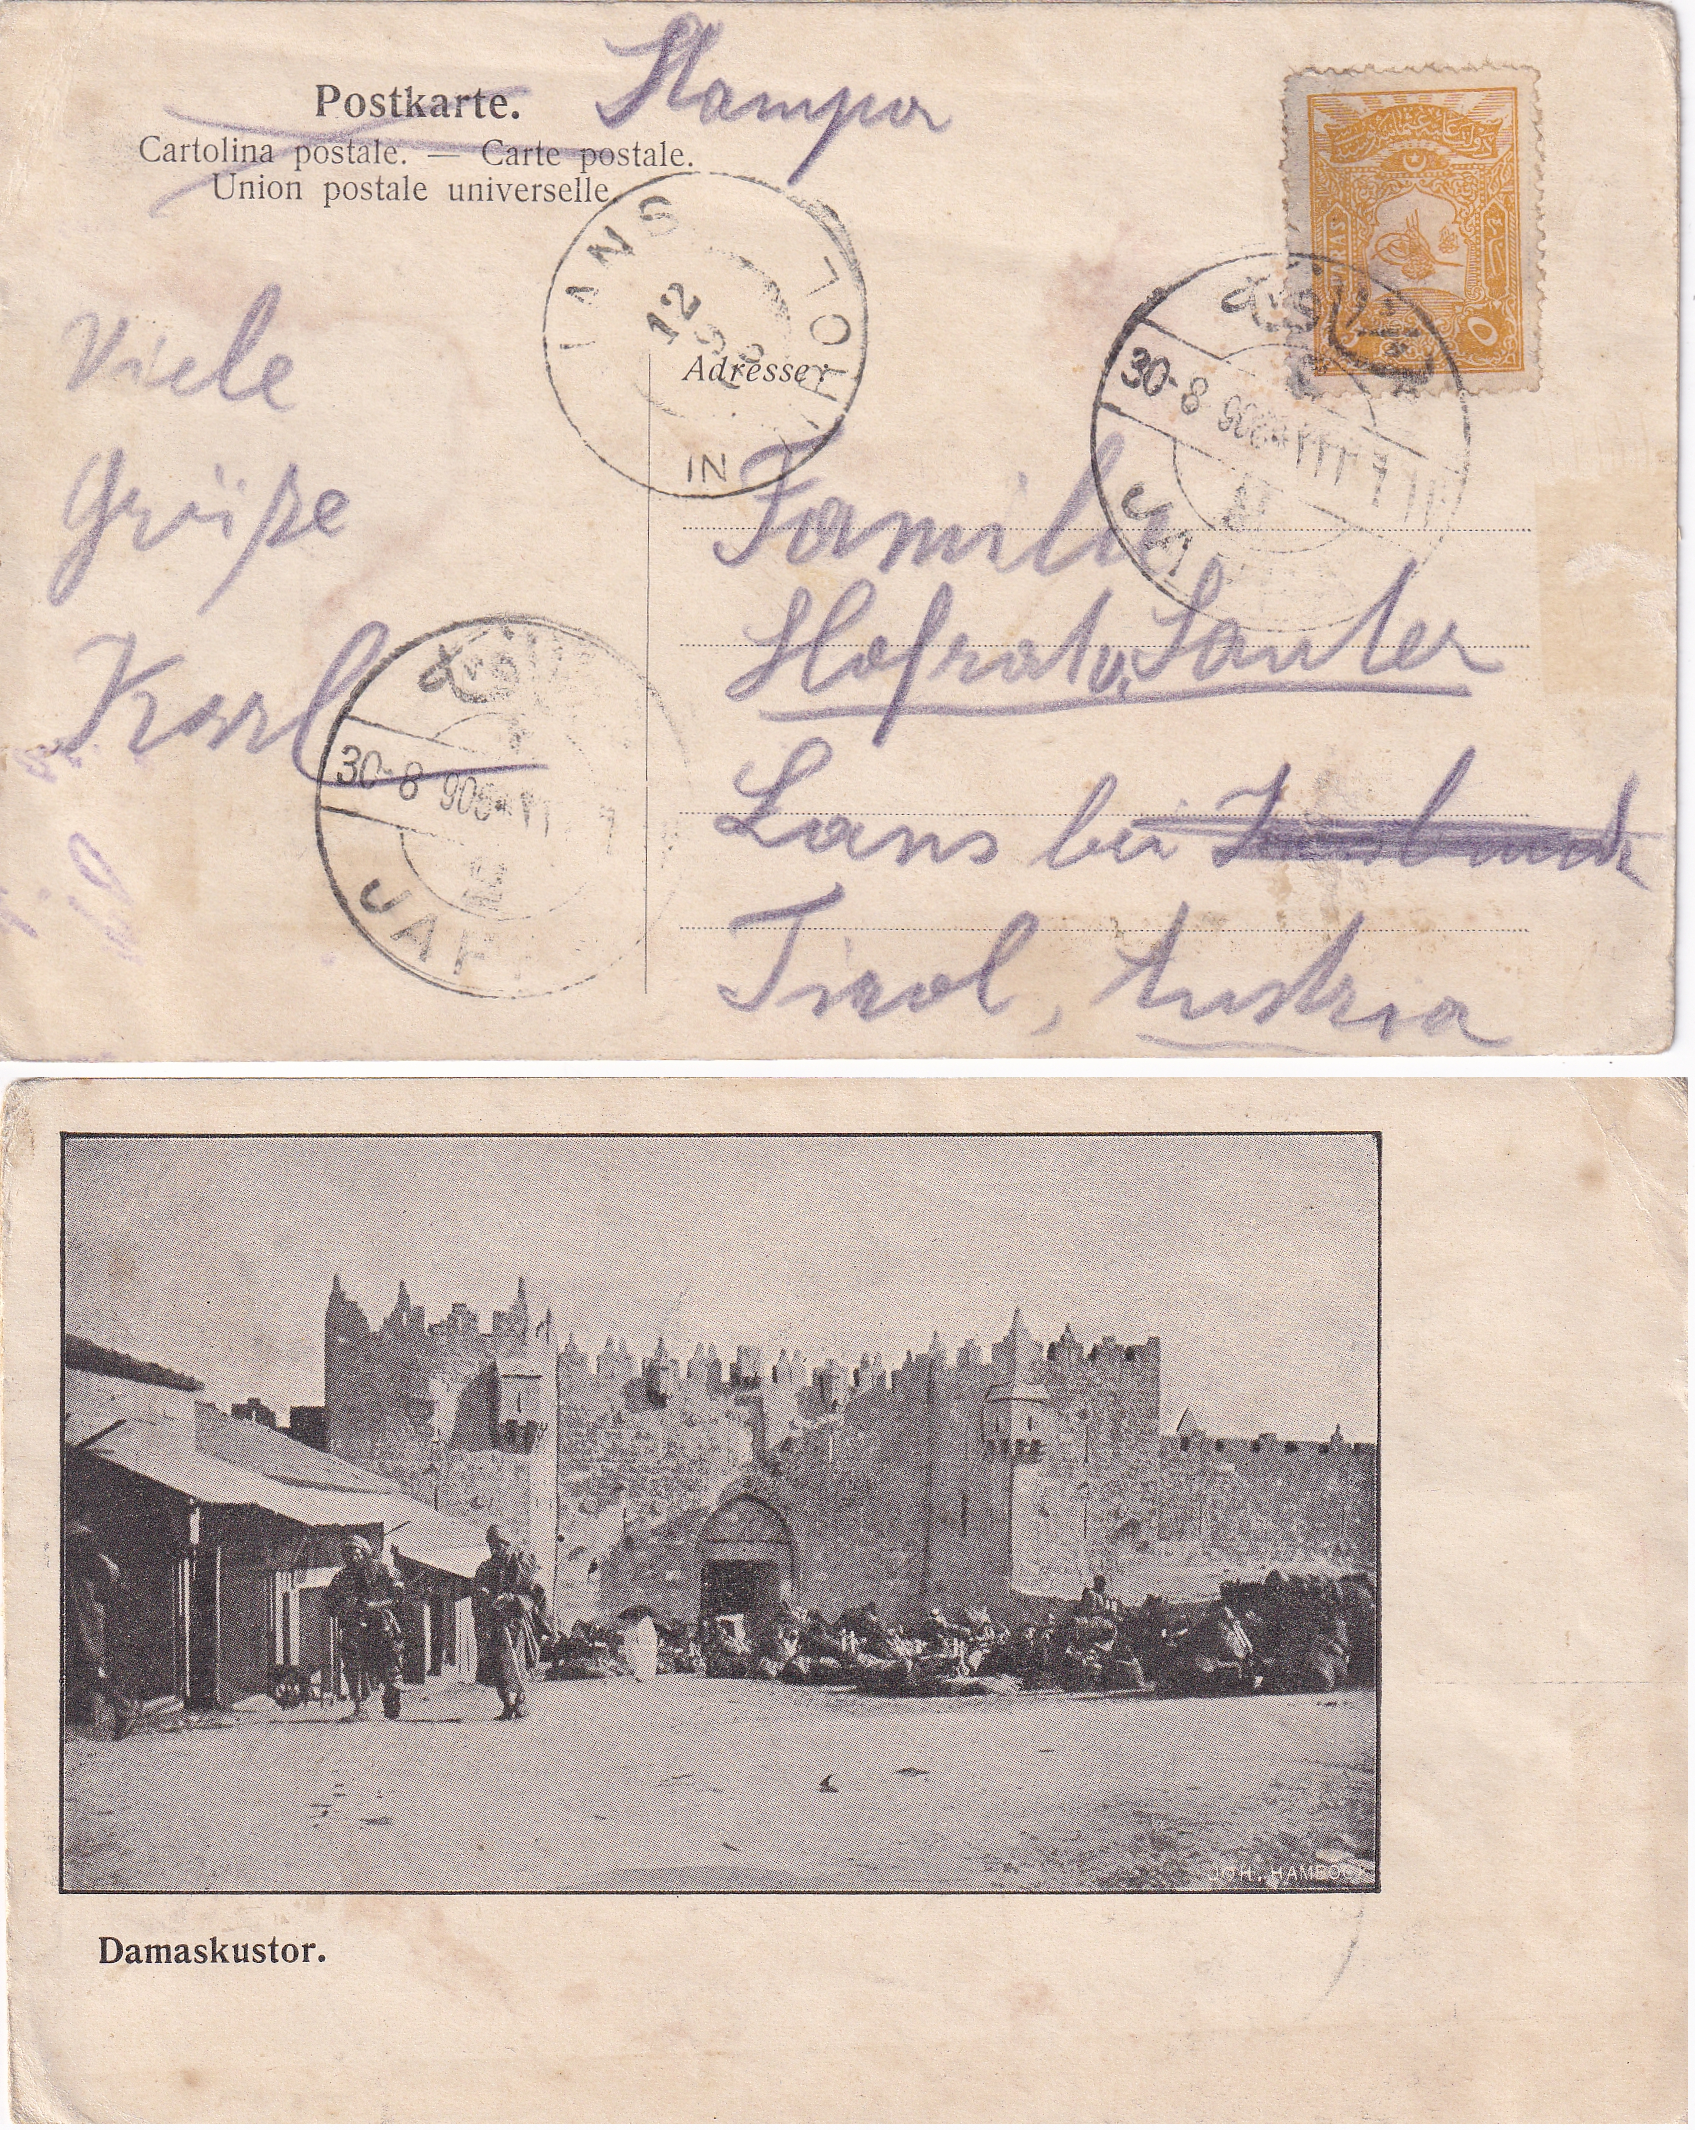 Postkarte.
Stampa
Cartolina postale. — Carte postale.
Union postale universelle.
LANS
12
9
IN TIROL
Adresse
٥
30-8 906
Viele
Grüße
Karl
Familie
Hofrat v. Sauter
Lans bei Innsbruck
Tirol, Austria
30-8 906
JAFFA
Damaskustor.